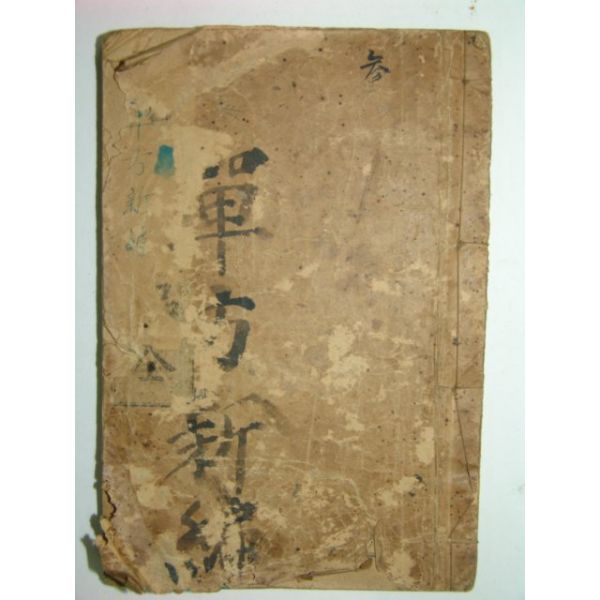 單方新編
單方新編
全